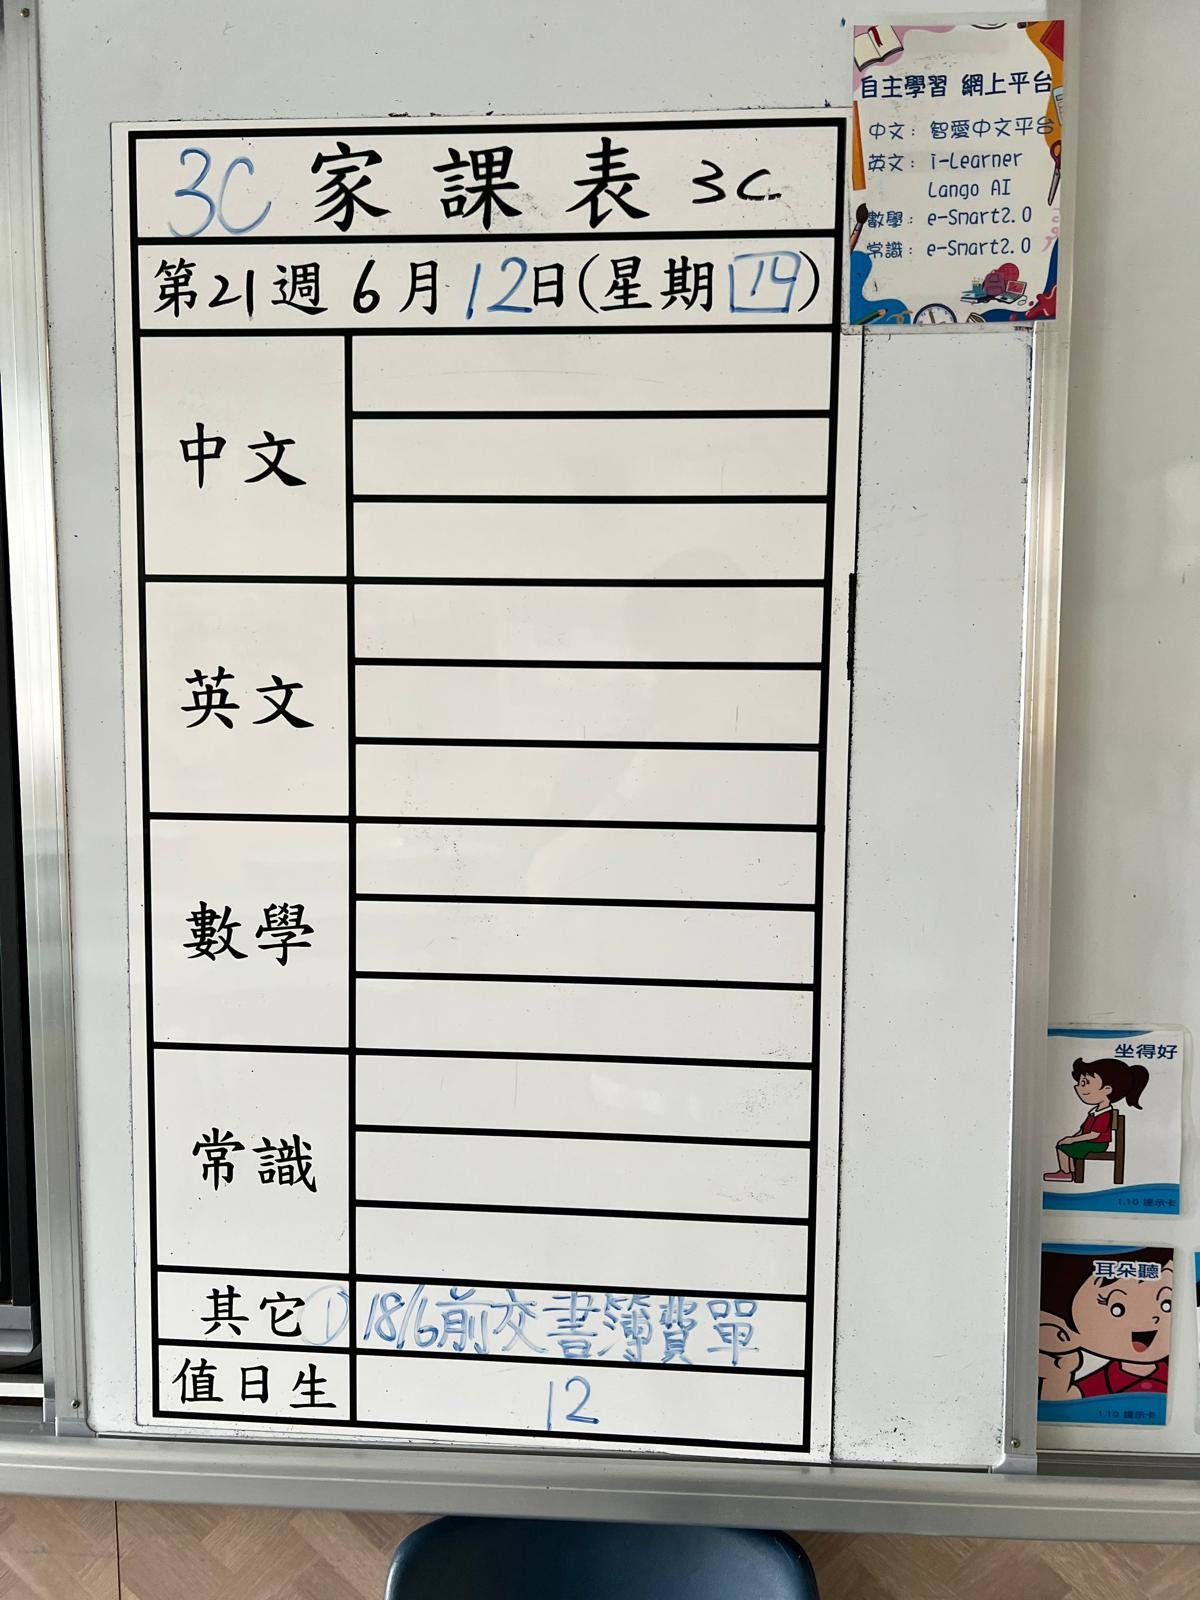 3C 家課表 3C.
第21週6月12日(星期四)
中文
英文
數學
常識
其它 ① 18/6前交書簿費單
值日生 12
自主學習 網上平台
中文：智愛中文平台
英文：i-Learner
Lango AI
數學：e-Smart2.0
常識：e-Smart2.0
坐得好
1.10 提示卡
耳朵聽
1.10 提示卡